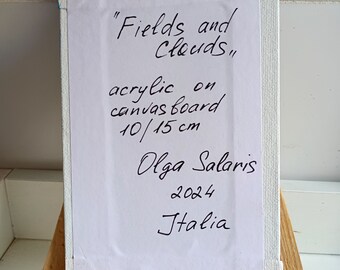 "Fields and
Clouds„
acrylic on
canvasboard
10/15 cm
Olga Salaris
2024
Italia